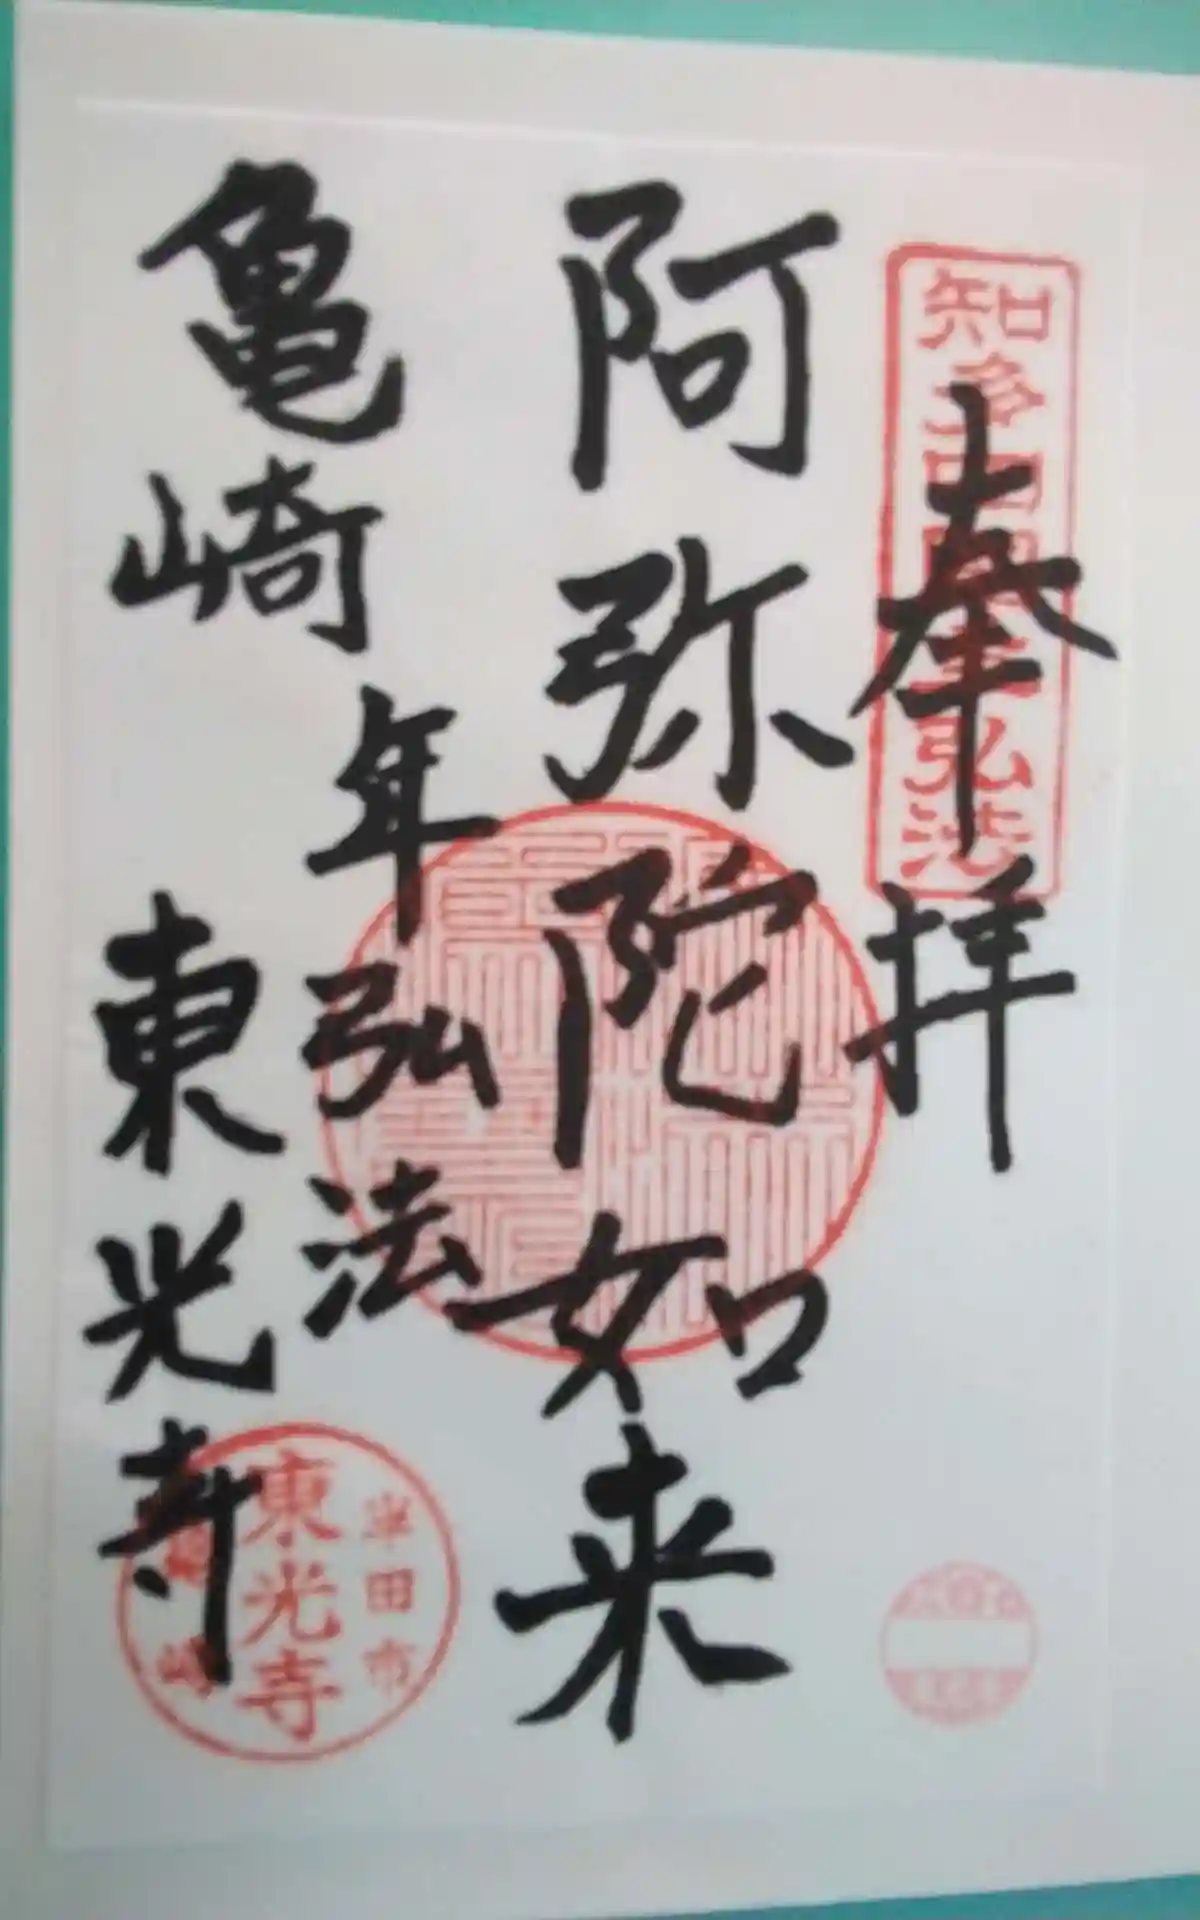 奉拝
知多四国霊 弘法
阿弥陀如来
年弘法
亀崎 東光寺
半田市
東光寺
亀崎